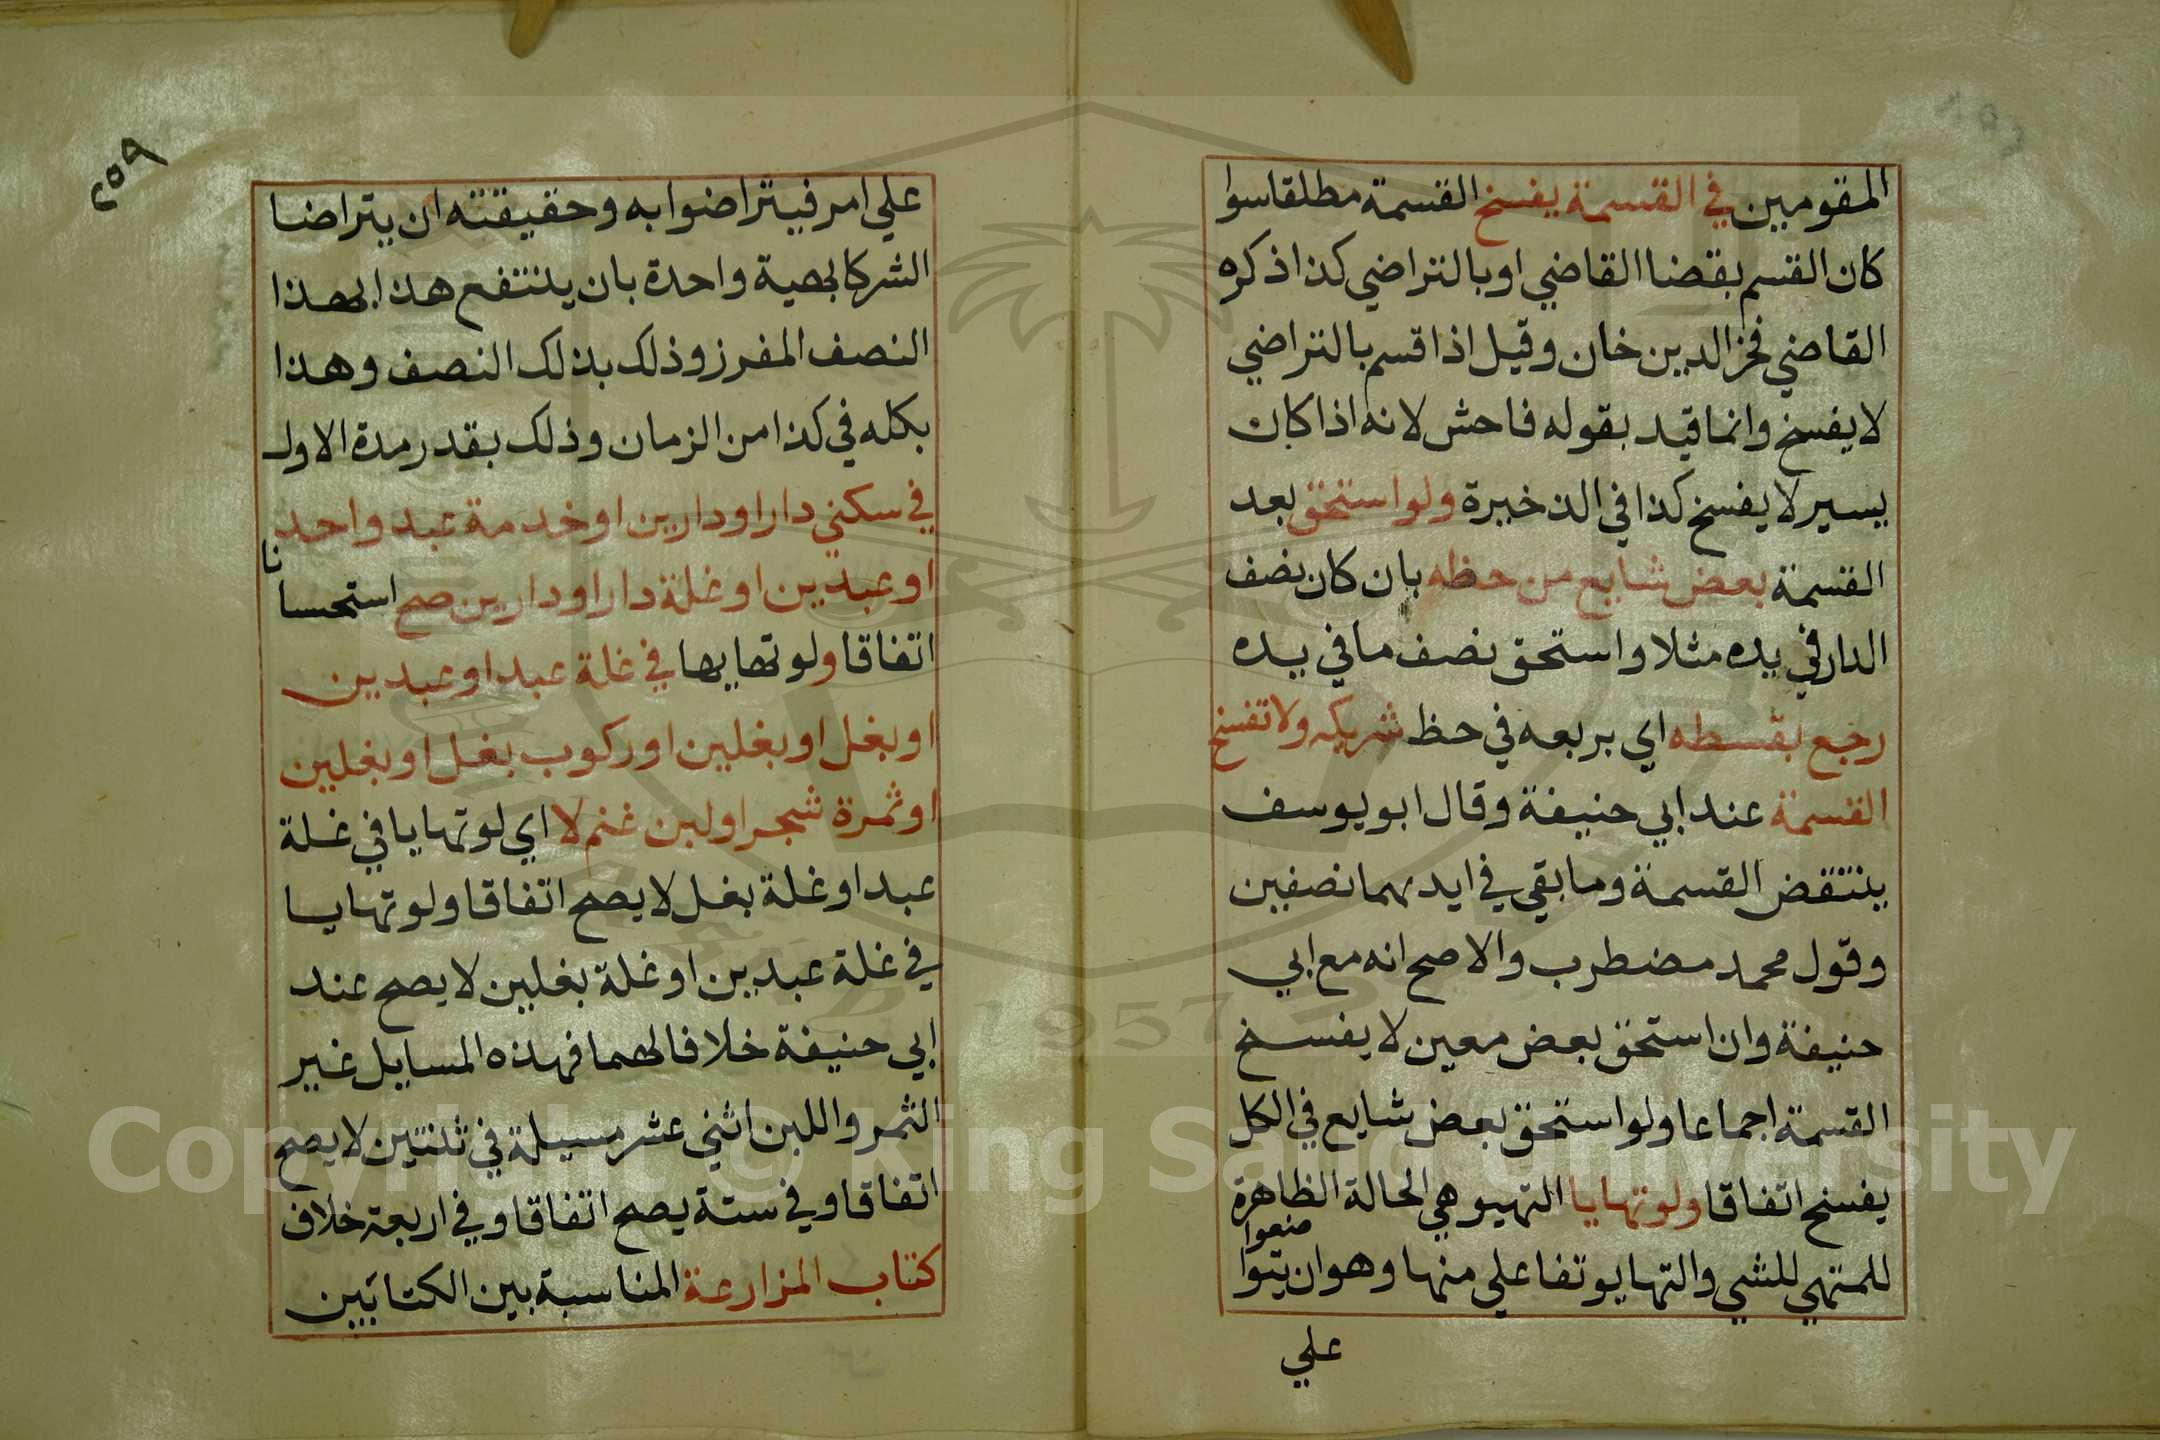 المقومين في القسمة يفسخ القسمة مطلقا سوا
كان القسم بقضا القاضي او بالتراضي كذا ذكره
القاضي فخر الدين خان وقيل اذا قسم بالتراضي
لا يفسخ وانما قيد بقوله فاحش لانه اذا كان
يسير لا يفسخ كذا في الذخيرة ولو استحق بعد
القسمة بعض شايع من حظه بان كان نصف
الدار في يده مثلا واستحق نصف ما في يده
رجع بقسطه اي بربعه في حظ شريكه ولا تفسخ
القسمة عند ابي حنيفة وقال ابو يوسف
ينتقض القسمة وما بقي في ايديهما نصفين
وقول محمد مضطرب والاصح انه مع ابي
حنيفة وان استحق بعض معين لا يفسخ
القسمة اجماعا ولو استحق بعض شايع في الكل
يفسخ اتفاقا ولو تهايا التهيو هي الحالة الظاهرة
للمتهي للشي والتهايو تفاعل منها وهو ان يتوا
ضعوا
علي
٢٥٩
علي امر فيتراضوا به وحقيقته ان يتراضا
الشركا بهية واحدة بان ينتفع هذا بهذا
النصف المفرز وذلك بذلك النصف وهذا
بكله في كذا من الزمان وذلك بقدر مدة الاول
في سكني دار او دارين او خدمة عبد واحد
او عبدين او غلة دار او دارين صح استحسانا
اتفاقا ولو تهايها في غلة عبد او عبدين
او بغل او بغلين او ركوب بغل او بغلين
او ثمرة شجر او لبن غنم لا اي لو تهايا في غلة
عبد او غلة بغل لا يصح اتفاقا ولو تهايا
في غلة عبدين او غلة بغلين لا يصح عند
ابي حنيفة خلافا لهما فهذه المسايل غير
الثمر واللبن اثني عشر مسيلة في ثنتين لا يصح
اتفاقا وفي ستة يصح اتفاقا وفي اربعة خلاف
كتاب المزارعة المناسبة بين الكتابين
1957
Copyright © King Saud University